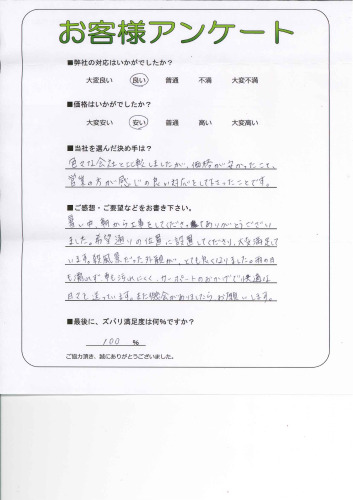 お客様アンケート
■弊社の対応はいかがでしたか?
大変良い 良い 普通 不満 大変不満
■価格はいかがでしたか?
大変安い 安い 普通 高い 大変高い
■当社を選んだ決め手は?
色々な会社と比較しましたが、価格が安かったこと。
営業の方が感じの良い対応をして下さったことです。
■ご感想・ご要望などをお書き下さい。
暑い中、朝から工事をしてくださりありがとうござい
ました。希望通りの位置に設置してくださり、大変満足して
います。殺風景だった外観が、とても良くなりました。雨の日
も濡れず車も汚れにくく、カーポートのおかげで快適な
日々を送っています。また機会がありましたらお願いします。
■最後に、ズバリ満足度は何%ですか?
100 %
ご協力頂き、誠にありがとうございました。